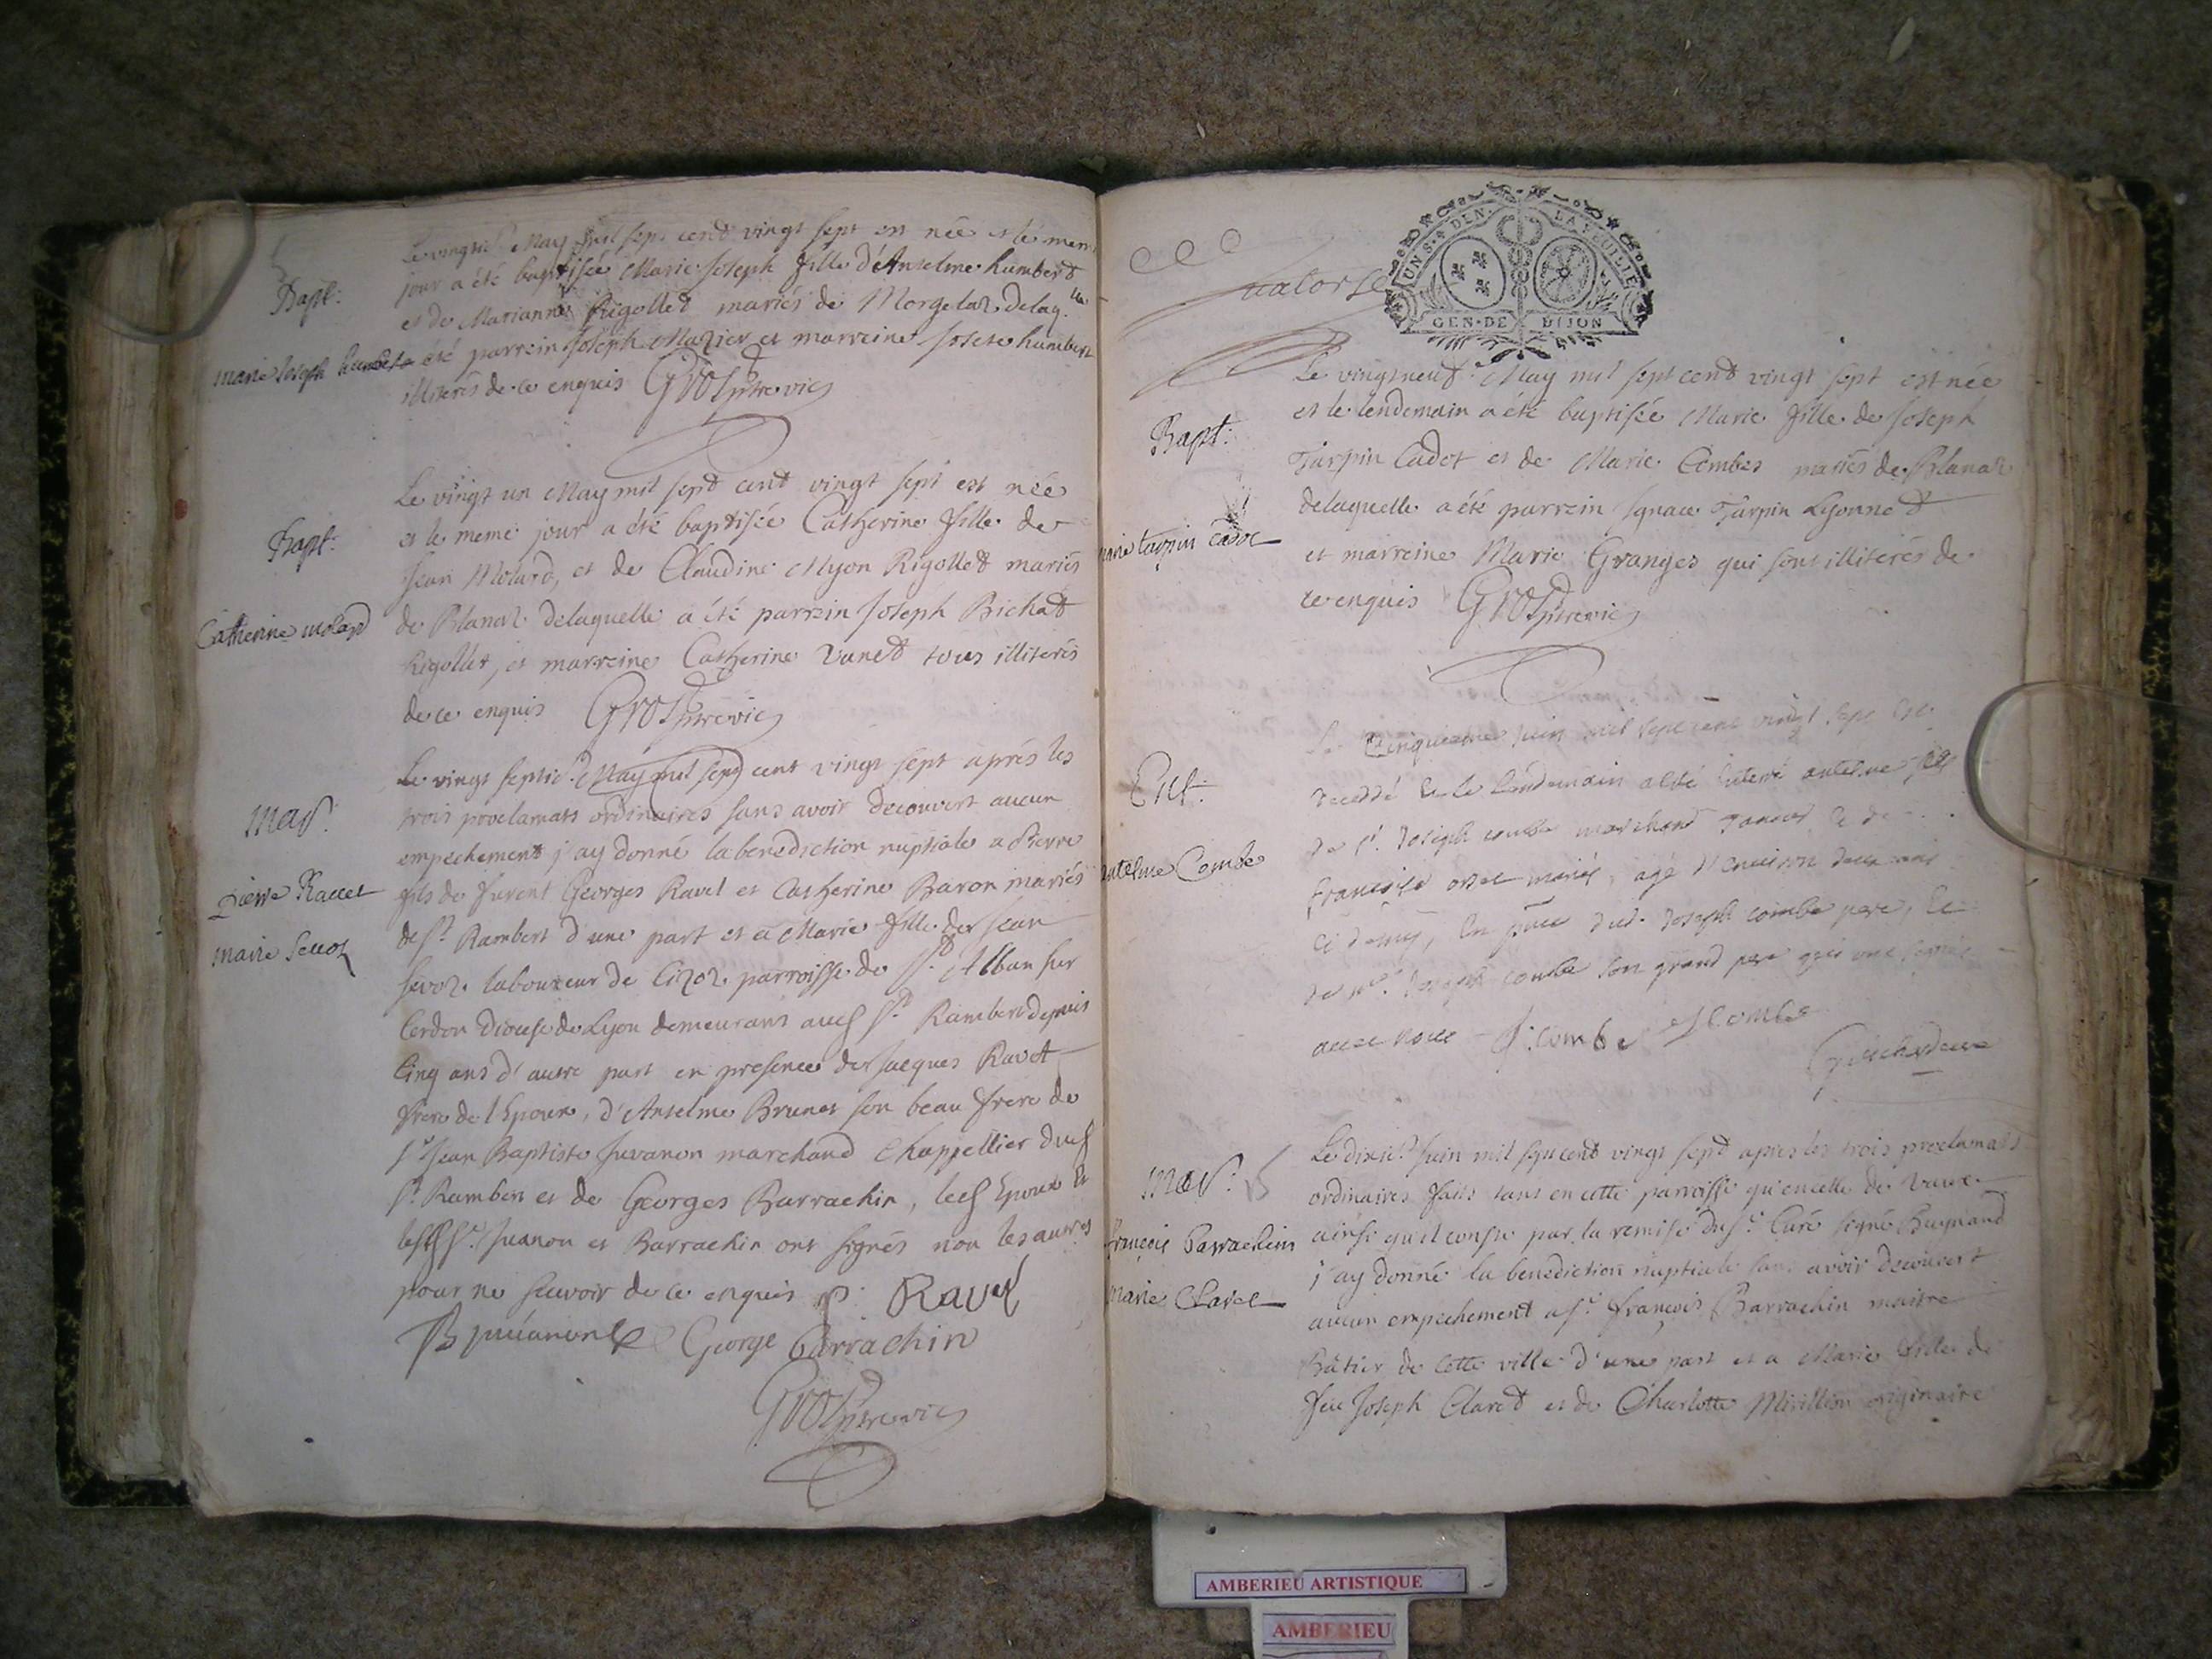 Bapt:
marie Joseph humbert
Le vingtie. May mil sept cent vingt sept est née et le mem
jour a été baptisée Marie Joseph fille d'Anselme humbert
et de Marianne Rigollet mariés de Morgelas delaq.lle
a été parrein Joseph Mazier et marreine Josete humbert
illiterés de ce enquis
Bapt:
Catherine molard
Le vingt un May mil sept cent vingt sept est née
et le meme jour a été baptisée Catherine fille de
Jean Molard, et de Claudine Myon Rigollet mariés
de Blanaz delaquelle a été parrein Joseph Bichat
Rigollet, et marreine Catherine Vanet tous illiterés
de ce enquis
Mar.
Pierre Ravet
marie Sevoz
Le vingt septie. May mil sept cent vingt sept aprés les
trois proclamats ordinaires sans avoir decouvert aucun
empechement j'ay donné la benediction nuptiale a Pierre
fils de furent Georges Ravet et Catherine Baron mariés
de St. Rambert d'une part et a Marie fille de Jean
Sevoz laboureur de Cizoz parroisse de St. Alban sur
Cerdon Diocese de Lyon demeurant aud St. Rambert depuis
Cinq ans d'autre part en presence de Jacques Ravet
frere de l'Epoux, d'Anselme Brunet son beau frere de
Sr Jean Baptiste Juvanon marchand Chappellier dud
St. Rambert et de Georges Barrachin, led Epoux et
lesd Sr. Juvanon et Barrachin ont signés non les autres
pour ne scavoir de ce enquis P. Ravet
George Barrachin
quatorse
UNS. DEN. LA FEUILLE
GEN. DE DIJON
Bapt:
marie tarpin cadot
Le vingtneuf. May mil sept cent vingt sept est née
et le lendemain a été baptisée Marie fille de Joseph
Tarpin Cadot et de Marie Combes mariés de Blanaz
delaquelle a été parrein Ignace Tarpin Lyonnet
et marreine Marie Granges qui sont illiterés de
ce enquis
antelme Combe
Le Cinquieme Juin mil sept cent vingt sept est
decedé et le lendemain a été enterré antelme fils
de sr. Joseph combe marchand et de
françoise mariés, agé d'environ deux ans
et demy, en pnce dud. Joseph combe pere, et
de Joseph combe son grand pere qui ont signés
avec nous J. combe J Combe
Mar.
françois Barrachin
marie Claret
Le dixie. Juin mil sept cent vingt sept apres les trois proclamats
ordinaires faits tant en cette parroisse qu'en celle de Vaux
ainsi qu'il conste par la remise du Sr. Curé signé Bugnand
j'ay donné la benediction nuptiale sans avoir decouvert
aucun empechement a Sr. françois Barrachin maitre
Bâtier de cette ville d'une part et a Marie fille de
feu Joseph Claret et de Charlotte originaire
AMBERIEU ARTISTIQUE
AMBERIEU